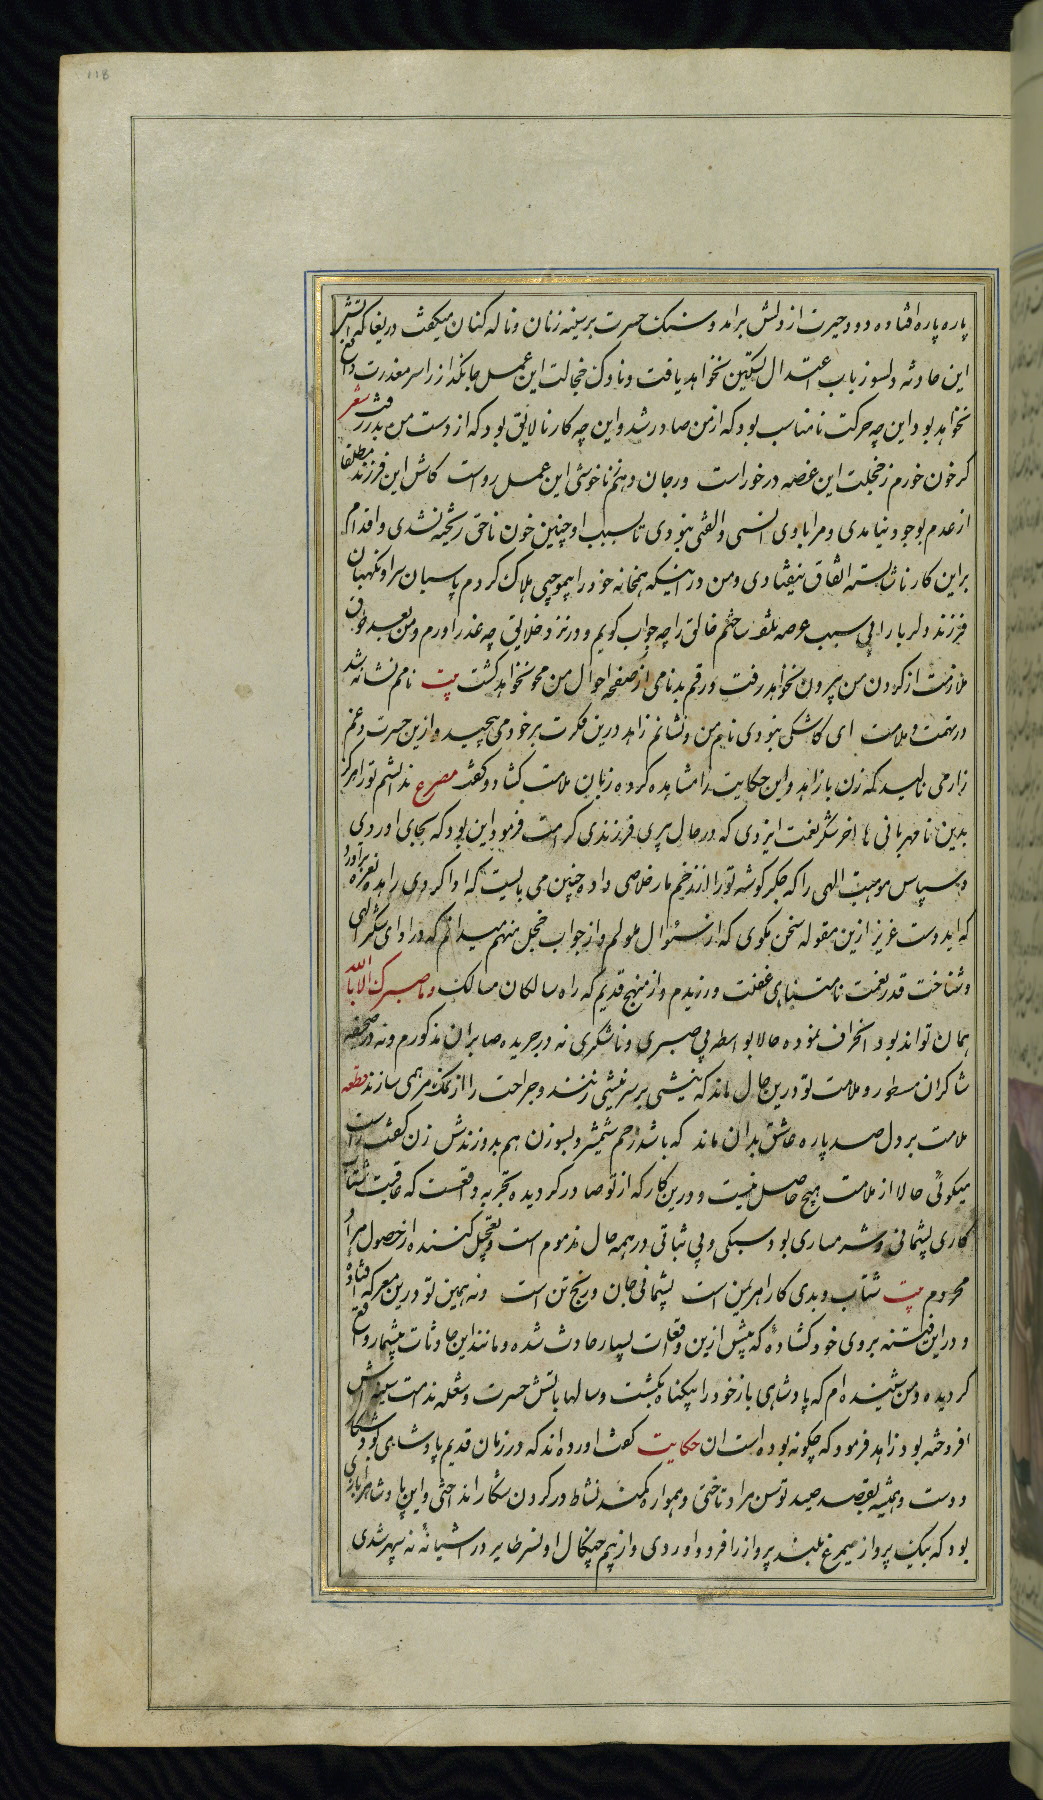 118
پاره پاره افتاده دود حیرت از دلش برامد و سنک حسرت بر سینه زنان و ناله کنان میکفت دریغا که اتش
این حادثه دلسوز باب اعتدال تسکین نخواهد یافت و ناوک خجالت این عمل جانکداز را سپر معذرت دافع
نخواهد بود این چه حرکت نامناسب بود که از من صادر شد و این چه کار نالایق بود که از دست من بدر رفت شعر
کر خون خورم ز خجلت این غصه در خور است ور جان دهم ز ناخوشی این عمل رواست کاش این فرزند مطلقا
از عدم بوجود نیامدی و مرا با وی انسی و الفتی نبودی تا بسبب او چنین خون ناحق ریخته نشدی و اقدام
بر این کار ناشایسته اتفاق نیفتادی و من در اینکه همخانه خود را بیموجبی هلاک کردم پاسبان سرا و نکهبان
فرزند دلربا را بی سبب عرصه تلف ساختم خالق را چه جواب کویم و در نزد خلایق چه عذر اورم و من بعد طوق
ملامت از کردن من بیرون نخواهد رفت و رقم بدنامی از صفحه احوال من محو نخواهد کشت بیت نامم نشانه شد
در تهمت و ملامت ای کاشکی نبودی نام من و نشانم زاهد درین فکرت بر خود می پیچید و ازین حسرت و غم
زار می نالید که زن باز امد و این حکایت را مشاهده کرده زبان ملامت کشاد و کفت مصرع ندانستم تو را هرکز
بدین نامهربانی ها اخر شکر نعمت ایزدی که در حال پیری فرزندی کرامت فرمود این بود که بجای اوردی
و سپاس موهبت الهی را که جکر کوشه تو را از زخم مار خلاصی داده چنین می بایست که ادا کردی زاهد نعره براورد
که ای دوست عزیز ازین مقوله سخن مکوی که از سئوال ملولم و از جواب خجل منهم میدانم که در ادای شکر الهی
و شناخت قدر نعمت نامتناهی غفلت ورزیدم و از منهج قدیم که راه سالکان مسالک و ماصبرک الا بالله
همان تواند بود انحراف نموده حالا بواسطه بی صبری و ناشکری نه در جریده صابران مذکورم و نه در صحیفه
شاکران مسطور و ملامت تو درین حال ماند که نیشی بر سر نیشی زنند و جراحت را از نمک مرهمی سازند قطعه
ملامت بر دل صد پاره عاشق بدان ماند که باشد زخم شمشیر و بسوزن هم بدوزندش زن کفت راست
میکوئی حالا از ملامت هیچ حاصل نیست و درین کار که از تو صادر کردیده تجربه واقعست که عاقبت شتاب
کاری پشمانی و شرمساری بود و سبکی و بی ثباتی در همه حال مذموم است و تعجیل کننده از حصول مراد
محروم بیت شتاب و بدی کار اهریمن است پشمانی جان و رنج تن است و نه همین تو درین معرکه افتاده
و در این فتنه بروی خود کشاده که پیش ازین وقعات بسیار حادث شده و مانند این حادثات بیشمار واقع
کردیده و من شنیده ام که پادشاهی باز خود را بیکناه بکشت و سالها باتش حسرت و شعله ندامت سینه اش
افروخته بود زاهد فرمود که چکونه بوده است ان حکایت کفت اورده اند که در زمان قدیم پادشاهی بود شکار
دوست و همیشه بقصد صید توسن مراد تاختی و همواره کمند نشاط در کردن شکار انداختی و این پادشاه را بازی
بود که بیک پرواز سیمرغ بلند پرواز را فرود اوردی و از بیم چنکال او نسر طایر در اشیانه نه سپهر شدی